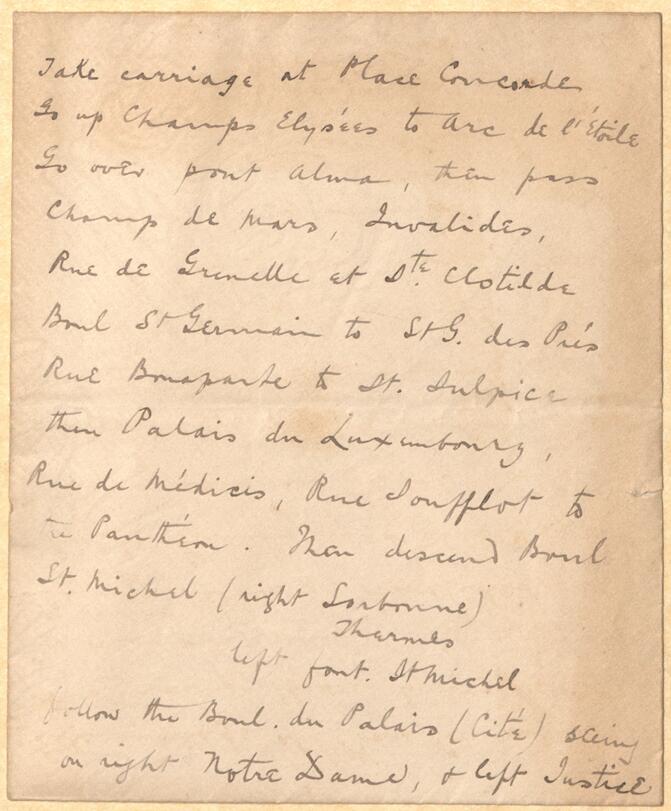 Take carriage at Place Concorde
Go up Champs Elysées to Arc de l'Étoile
Go over pont Alma, then pass
Champ de Mars, Invalides,
Rue de Grenelle et Ste. Clotilde
Boul St Germain to St G. des Prés
Rue Bonaparte to St. Sulpice
then Palais du Luxembourg,
Rue de Médicis, Rue Soufflot to
the Panthéon. Then descend Boul
St. Michel (right Sorbonne)
Thermes
left font. St Michel
Follow the Boul. du Palais (Cité) seeing
on right Notre Dame, & left Justice